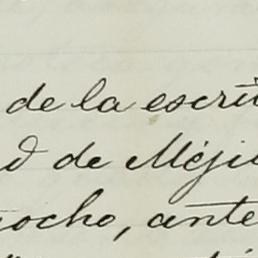 de la escritu
d de Méji
ocho, ante